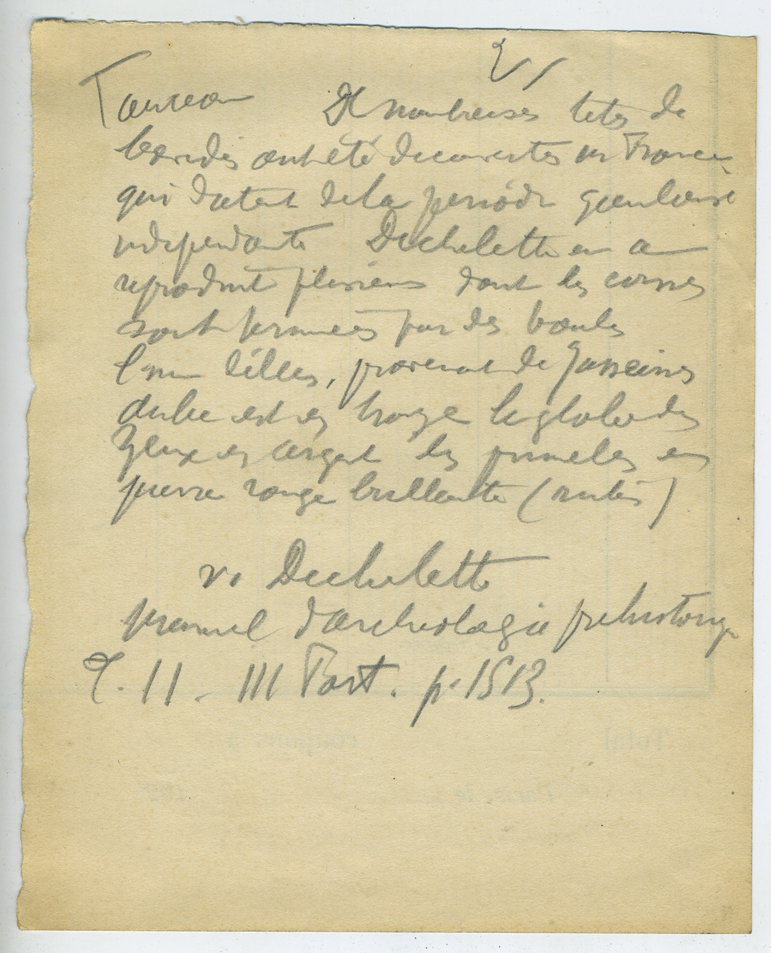 Taureau De nombreuses tetes de
bovidés ont été decouvertes en France
qui datent de la periode gauloise
independante Dechelette en a
reproduit plusieurs dont les cornes
sont termineés par des boules
L'une d'elles, provenant de
Aube est en bronze le globe des
yeux en argent les prunelles en
pierre rouge brillante (rubis)
v. Dechelette
manuel d'archeologie prehistorique
T. II - III Part. p. 1513.
Total
Paris, le